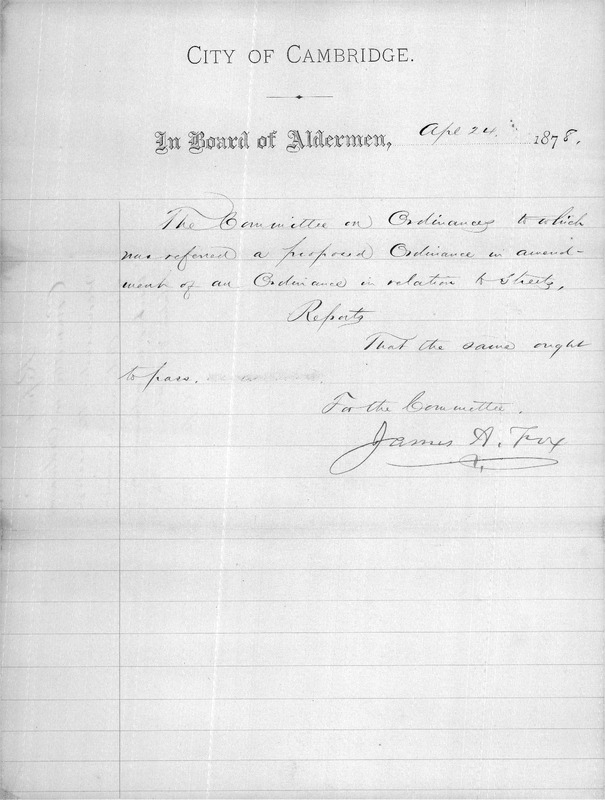 CITY OF CAMBRIDGE.
In Board of Aldermen, Apl 24. 1878.
The Committee on Ordinances to which
was referred a proposed Ordinance in amend-
ment of an Ordinance in relation to Streets,
Reports
That the same ought
to pass.
For the Committee.
James A. Fox